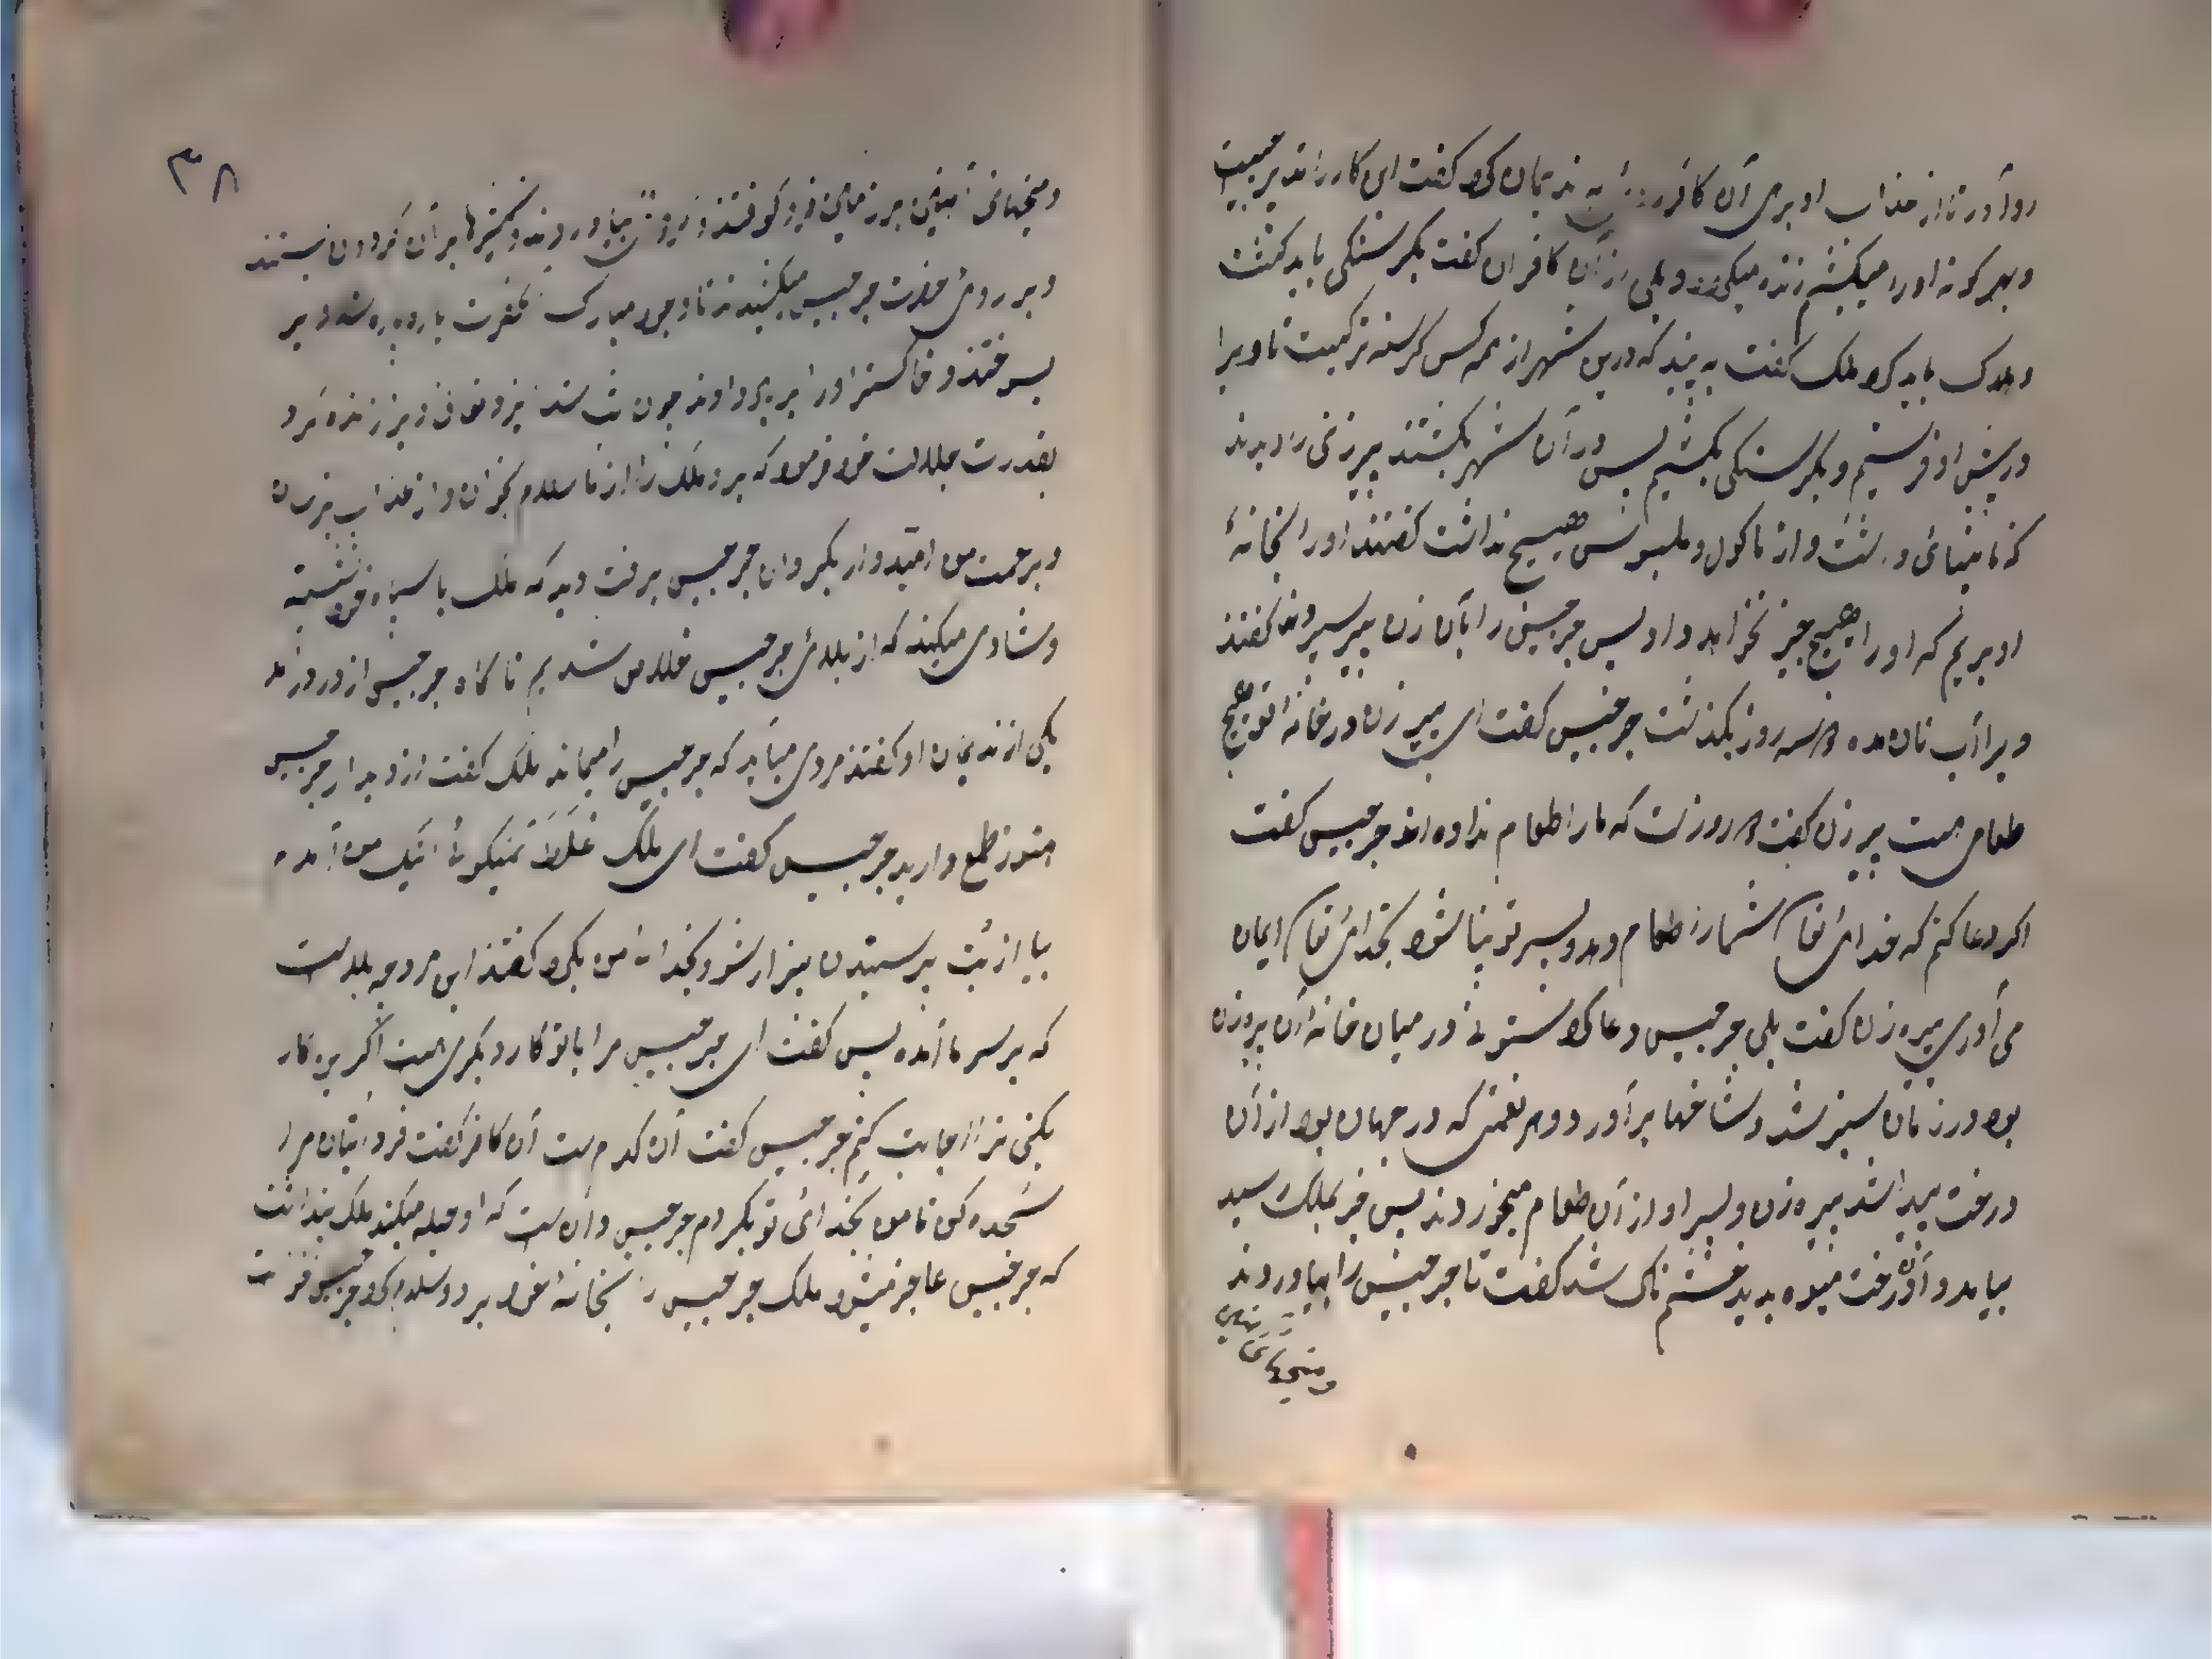 روا دور تا از عذاب او بری آن کافر به ندیمان کرد گفت ای کار را تدبیر چیست
و بهر گونه او را میکشم زنده میکند و یکی از آن کافران گفت بگرسنگی باید کشت
و هلاک باید کرد ملک گفت به بیند که درین شهر از همه کس گرسنه تر کیست تا ویرا
در پیش او فرستیم و بگرسنگی بکشیم پس در آن شهر بگشتند پیر زنی را دیدند
که نابینائی داشت و از ماکول و ملبوس هیچ نداشت گفتند او را بخانهٔ
او بریم که او را هیچ چیز نخواهد داد پس جرجیس را بآن زن پیر سپردند گفتند
ویرا آب نان مده سه روز بگذشت جرجیس گفت ای پیر زن در خانهٔ تو هیچ
طعامی هست پیر زن گفت روز است که ما را طعام نداده اند جرجیس گفت
اگر دعا کنم که خدای تعالی شما را طعام دهد و پسر تو بینا شود بخدای تعالی ایمان
می آوری پیره زن گفت بلی جرجیس دعا کرد ستونی در میان خانه آن پیره زن
بود در زمان سبز شد و شاخها بر آورد و هر نعمتی که در جهان بود از آن
درخت پیدا شد پیره زن و پسر او از آن طعام میخوردند پس خبر بملک رسید
بیامد و آن درخت میوه بدید خشم ناک شد گفت تا جرجیس را بیاوردند
و میخهای آهنین
۳۸
و میخهای آهنین بر زمین فرو کوفتند و بیاوردند و شمشیرها بر آن گردون بستند
و بر روی حضرت جرجیس میکشیدند تا وجود مبارک آنحضرت پاره پاره شد و بر
بسوختند و خاکستر او را بر باد دادند چون شب شد ایزد تعالی ویرا زنده کرد
بقدرت جلالت خود فرمود که برو ملک را از ما سلام بخوان و از عذاب بترسان
و برحمت من امیدوار بگردان جرجیس برفت دید که ملک با سپاه خود نشسته
و شادی میکند که از بلای جرجیس خلاص شدیم ناگاه جرجیس از در در آمد
یکی از ندیمان او گفتند مردی میآید که جرجیس را میماند ملک گفت از دیدار جرجیس
هنوز طمع دارید جرجیس گفت ای ملک غلط نمیگوئی اینک من آمدم
بیا از بت پرستیدن بیزار شو و بخدای من بگرو گفتند این مرد چه بلاست
که بر سر ما آمده پس گفت ای جرجیس مرا با تو کار دیگری هست اگر یه کار
بکنی ترا اجابت کنم جرجیس گفت آن کدام است آن کافر گفت فردا بتان مرا
سجده کن تا من بخدای تو بگردم جرجیس دانست که او حیله میکند ملک پنداشت
که جرجیس عاجز میشود ملک جرجیس را بخانهٔ خود برد و سلام کرد جرجیس